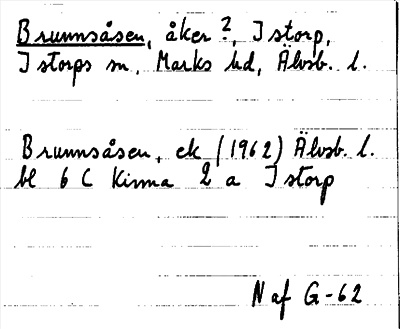 Brunnsåsen, åker ?, Istorp,
Istorps sn, Marks hd, Älvsb. l.
Brunnsåsen, ek (1962) Älvsb. l.
bl 6 C Kinna 2 a Istorp
N af G-62